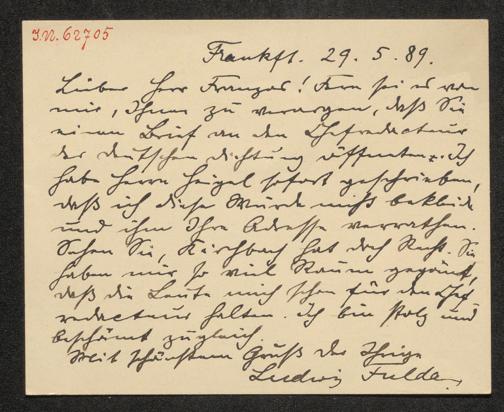 I.N. 62705
Frankft. 29. 5. 89.
Lieber Herr Franzos! Fern sei es von
mir, Ihnen zu verargen, daß Sie
einen Brief an den Chefredacteur
der deutschen Dichtung öffneten. Ich
habe Herrn Heigel sofort geschrieben,
daß ich diese Würde nicht bekleide
und ihm Ihre Adresse verrathen.
Sehen Sie, Kirchbach hat doch Recht. Sie
haben mir so viel Raum gegönnt,
daß die Leute mich schon für den Chef
redacteur halten. Ich bin stolz und
beschämt zugleich
Mit schönstem Gruß der Ihrige
Ludwig Fulda.